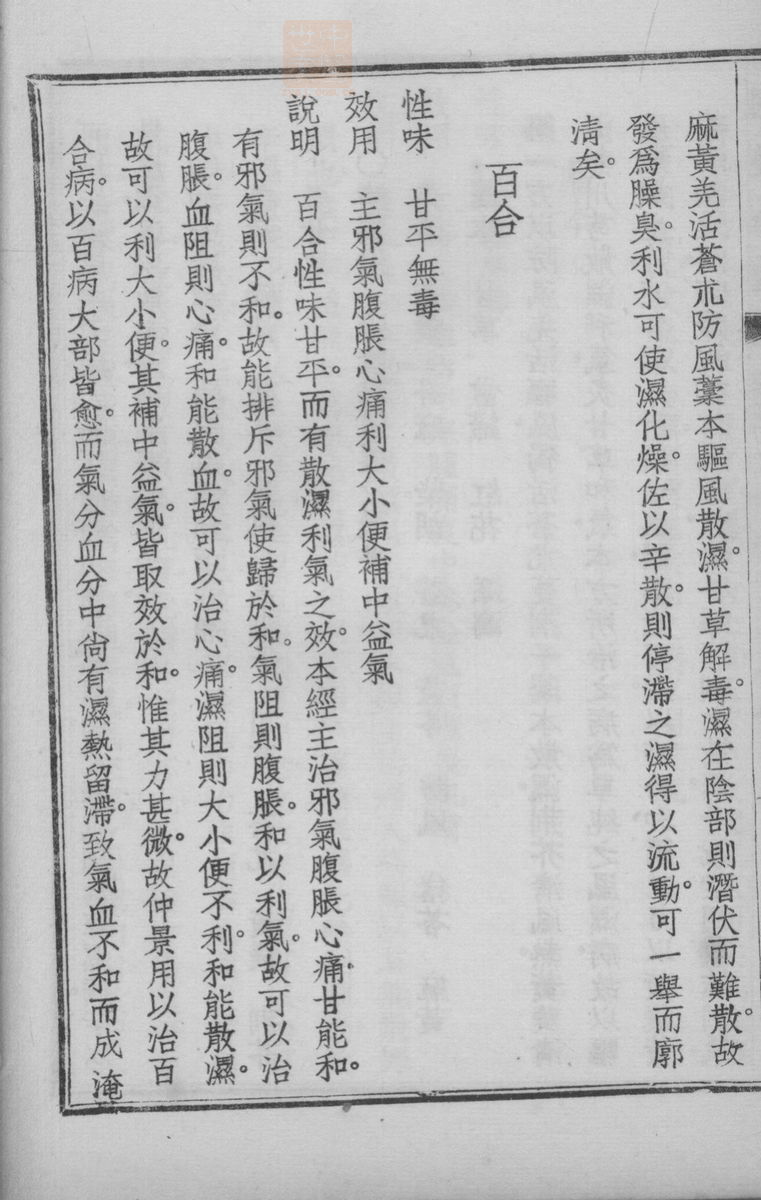 麻黃羌活蒼朮防風藁本驅風散濕。甘草解毒。濕在陰部則潛伏而難散。故
發爲臊臭。利水可使濕化燥。佐以辛散。則停滯之濕得以流動。可一舉而廓
淸矣。
百合
性味　甘平無毒
效用　主邪氣腹脹心痛利大小便補中益氣
說明　百合性味甘平。而有散濕利氣之效。本經主治邪氣腹脹心痛。甘能和。
有邪氣則不和。故能排斥邪氣使歸於和。氣阻則腹脹。和以利氣。故可以治
腹脹。血阻則心痛。和能散血。故可以治心痛。濕阻則大小便不利。和能散濕。
故可以利大小便。其補中益氣。皆取效於和。惟其力甚微。故仲景用以治百
合病。以百病大部皆愈。而氣分血分中尙有濕熱留滯。致氣血不和而成淹